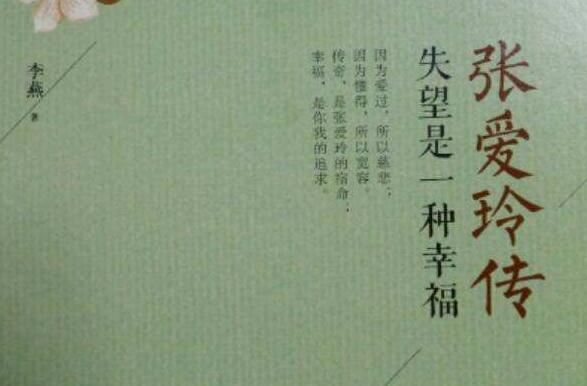 张爱玲传
失望是一种幸福
因为爱过，所以慈悲；
因为懂得，所以宽容。
传奇，是张爱玲的宿命；
幸福，是你我的追求。
李燕 著